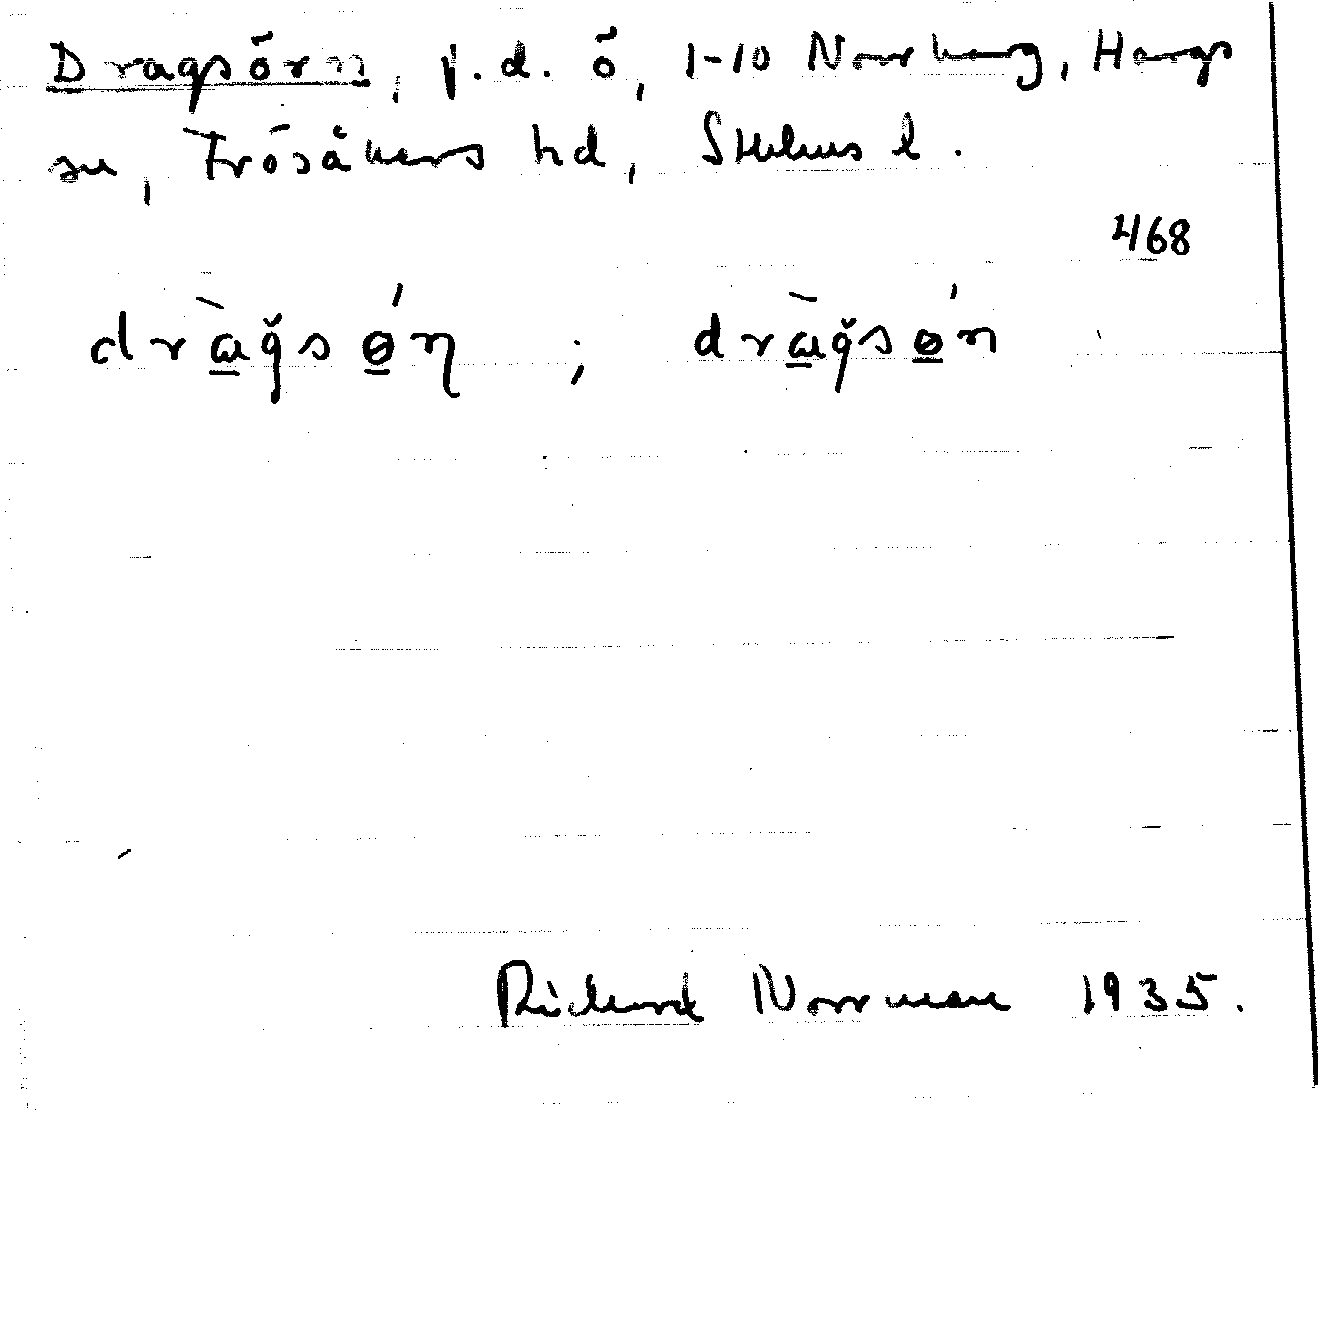 Dragsörn, f.d. ö, 1-10 Norrharg, Hargs
sn, Frösåkers hd, Sthlms l.
468
dràğsǿn ; dràğsǿn
Richard Norrman 1935.